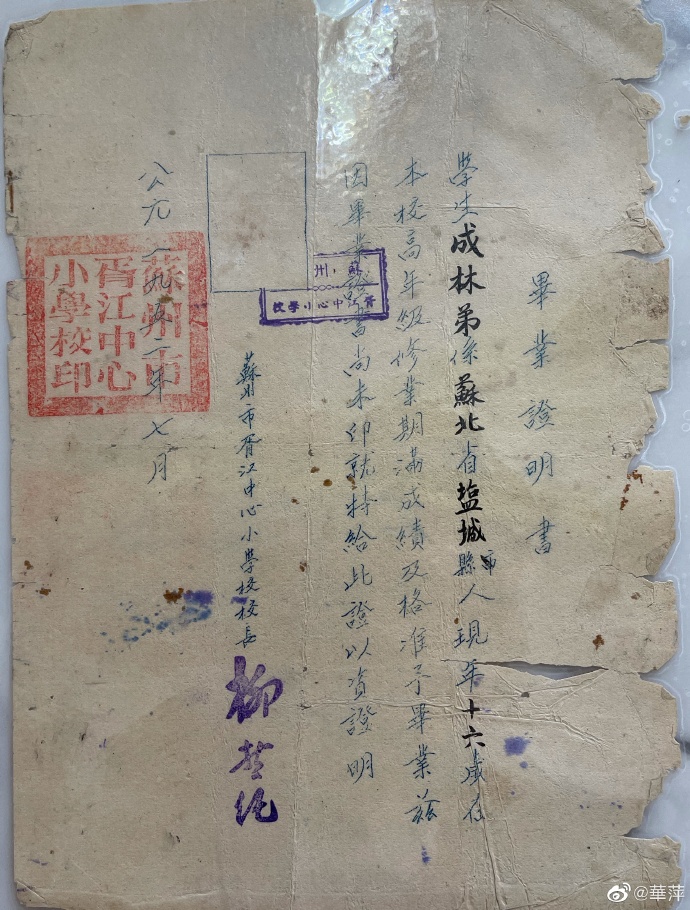 畢業證明書
學生成林弟係蘇北省塩城縣市人現年十六歲在
本校高年級修業期滿成績及格准予畢業茲
因畢業證書尚未印就特給此證以資證明
蘇州市胥江中心小學校校長 柳
公元一九五二年七月
蘇州市
胥江中心
小學校印
蘇州
胥江中心小學校
@華萍